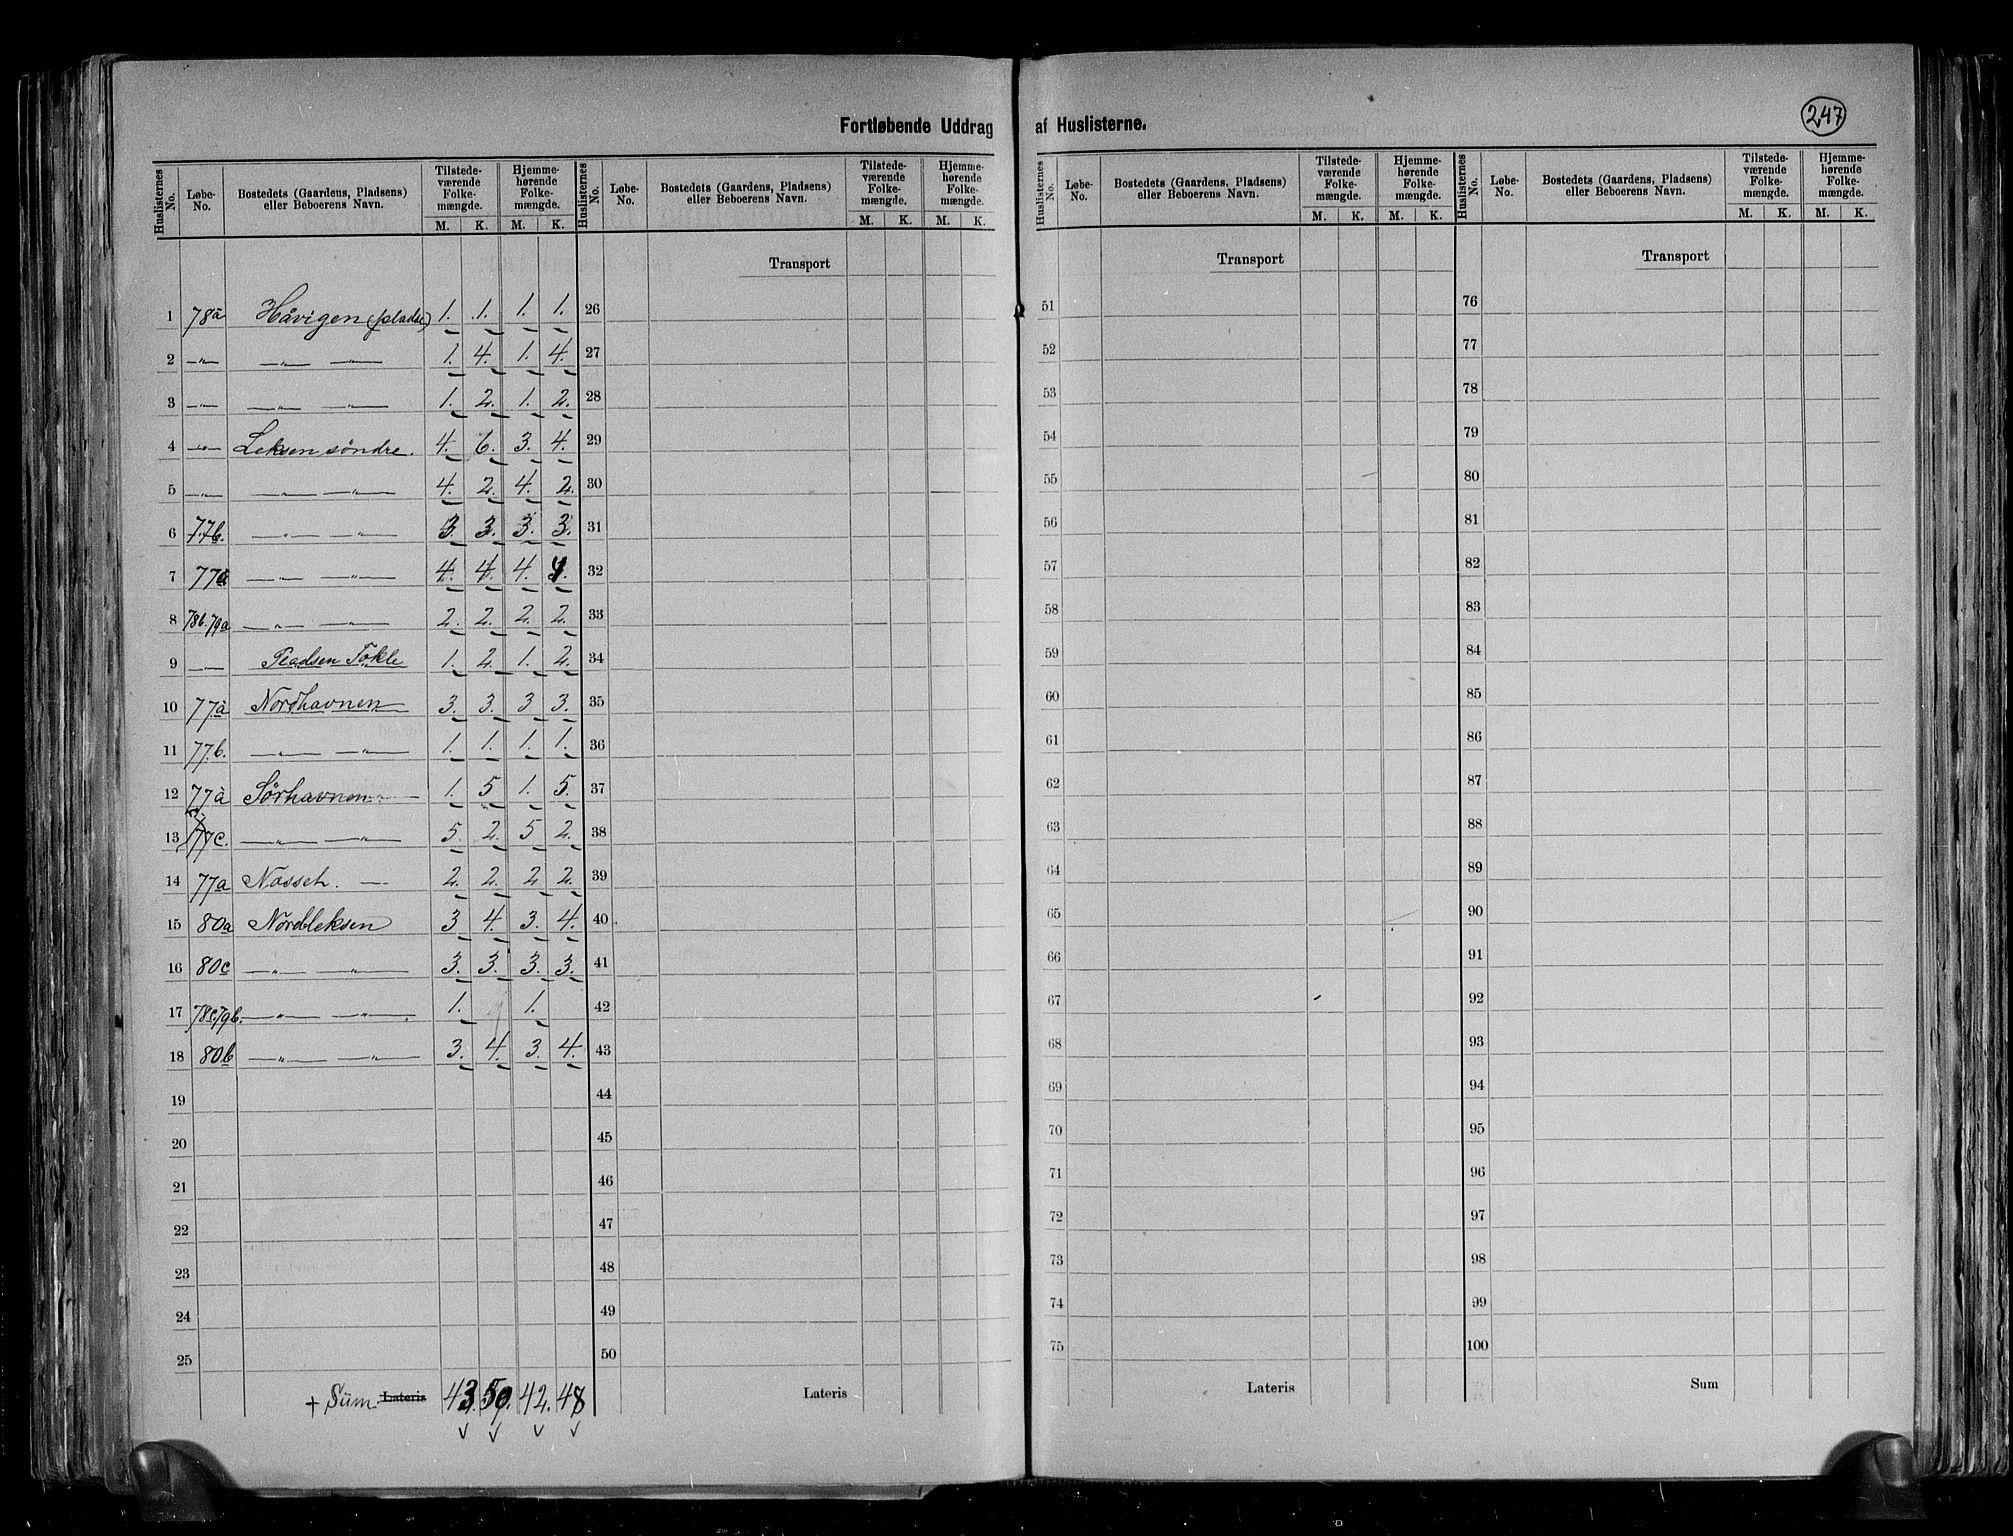 Fortløbende Uddrag af Huslisterne.
247
Huslisternes No. Løbe-No. Bostedets (Gaardens, Pladsens) eller Beboerens Navn. Tilstedeværende Folkemængde. Hjemmehørende Folkemængde. M. K. M. K.
Huslisternes No. Løbe-No. Bostedets (Gaardens, Pladsens) eller Beboerens Navn. Tilstedeværende Folkemængde. Hjemmehørende Folkemængde. M. K. M. K.
Transport
1 78a Håvigen (plads) 1. 1. 1. 1. 26
2 -"- -"- -"- 1. 4. 1. 4. 27
3 -"- -"- -"- 1. 2. 1. 2. 28
4 -"- Leksen söndre. 4. 6. 3. 4. 29
5 -"- -"- -"- 4. 2. 4. 2. 30
6 77b. -"- -"- 3. 3. 3. 3. 31
7 77a -"- -"- 4. 4. 4. 4. 32
8 78b.79a -"- -"- 2. 2. 2. 2. 33
9 -"- Pladsen Tokle 1. 2. 1. 2. 34
10 77a Nordhavnen 3. 3. 3 3. 35
11 77.b. -"- -"- 1. 1. 1. 1. 36
12 77a Sörhavnen 1. 5 1. 5. 37
13 77c. -"- -"- 5. 2. 5 2. 38
14 77a Nasset. 2. 2. 2 2. 39
15 80a Nordleksen 3 4. 3. 4. 40
16 80c -"- -"- 3. 3. 3. 3. 41
17 78c.79b. -"- -"- 1. 1. 42
18 80b -"- -"- 3. 4. 3. 4. 43
19 44
20 45
21 46
22 47
23 48
24 49
25 50
+ Süm. Lateris 43. 50. 42. 48
Lateris
Huslisternes No. Løbe-No. Bostedets (Gaardens, Pladsens) eller Beboerens Navn. Tilstedeværende Folkemængde. Hjemmehørende Folkemængde. M. K. M. K.
Huslisternes No. Løbe-No. Bostedets (Gaardens, Pladsens) eller Beboerens Navn. Tilstedeværende Folkemængde. Hjemmehørende Folkemængde. M. K. M. K.
Transport Transport
51 76
52 77
53 78
54 79
55 80
56 81
57 82
58 83
59 84
60 85
61 86
62 87
63 88
64 89
65 90
66 91
67 92
68 93
69 94
70 95
71 96
72 97
73 98
74 99
75 100
Lateris Sum